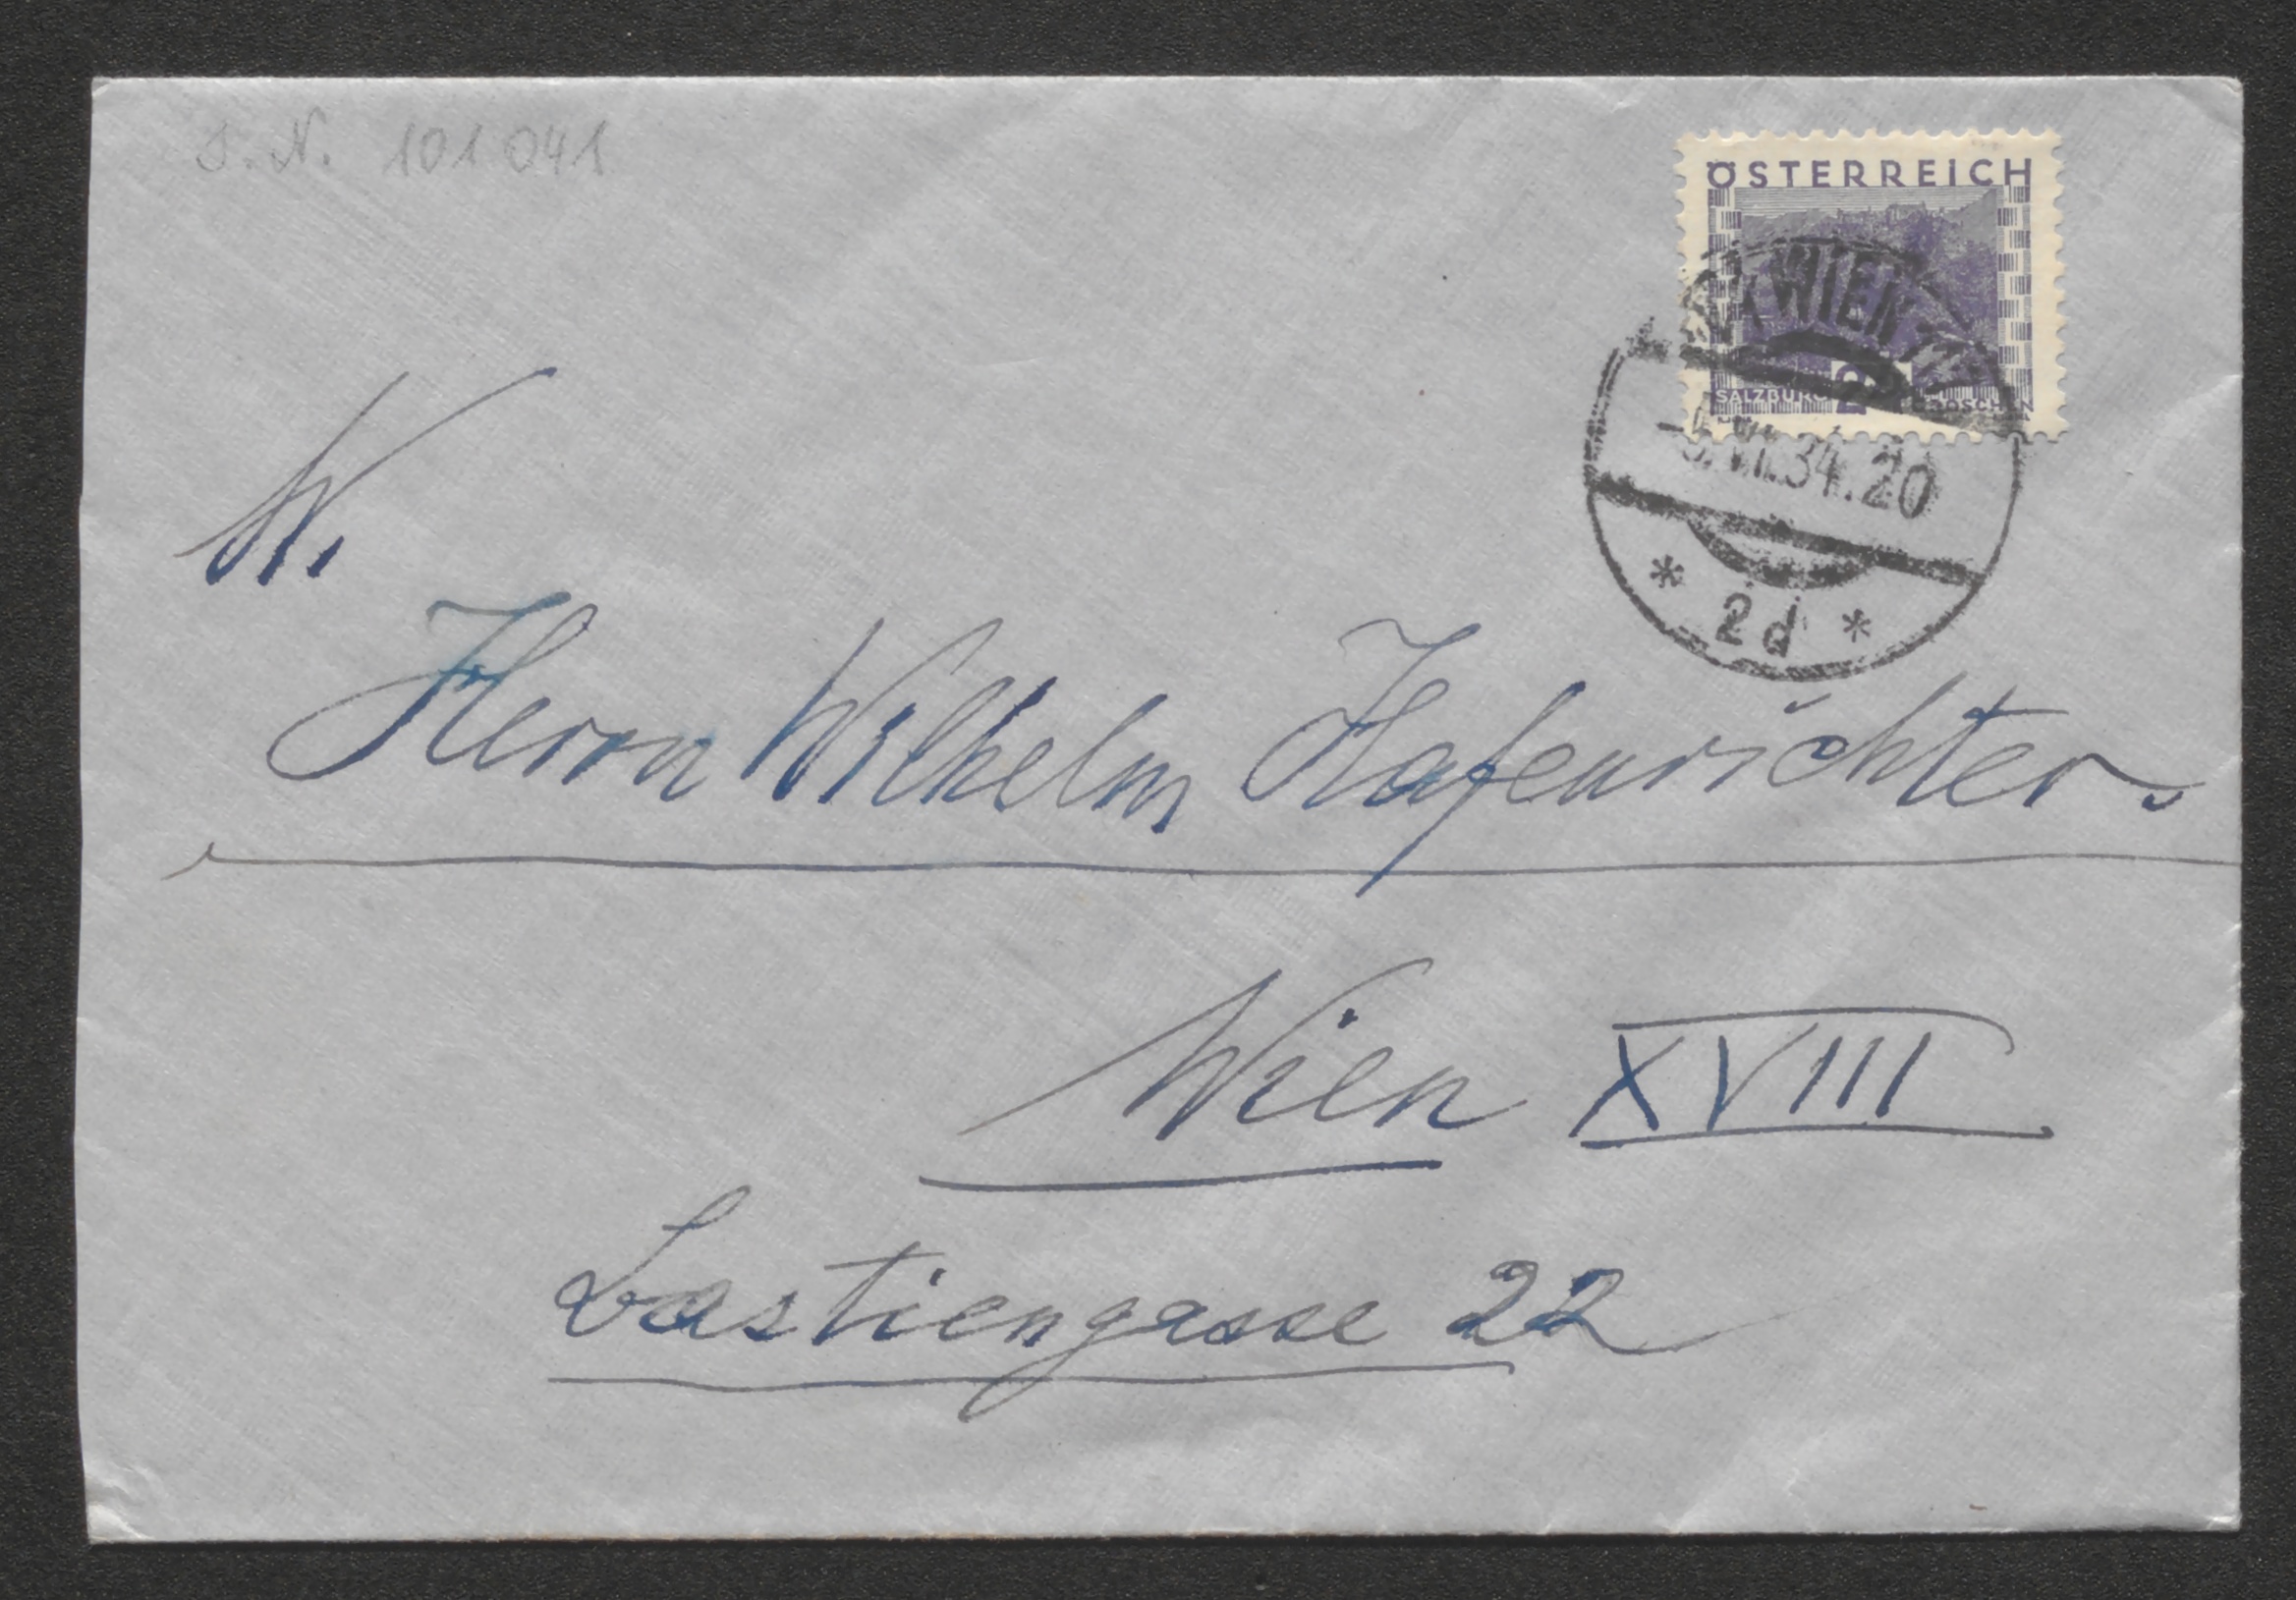 I. N. 101041
ÖSTERREICH
WIEN
SALZBURG 2 GROSCHEN
VII.34.20
* 2d *
W.
Herrn Wilhelm Hafenrichter.
Wien XVIII
Bastiengasse 22